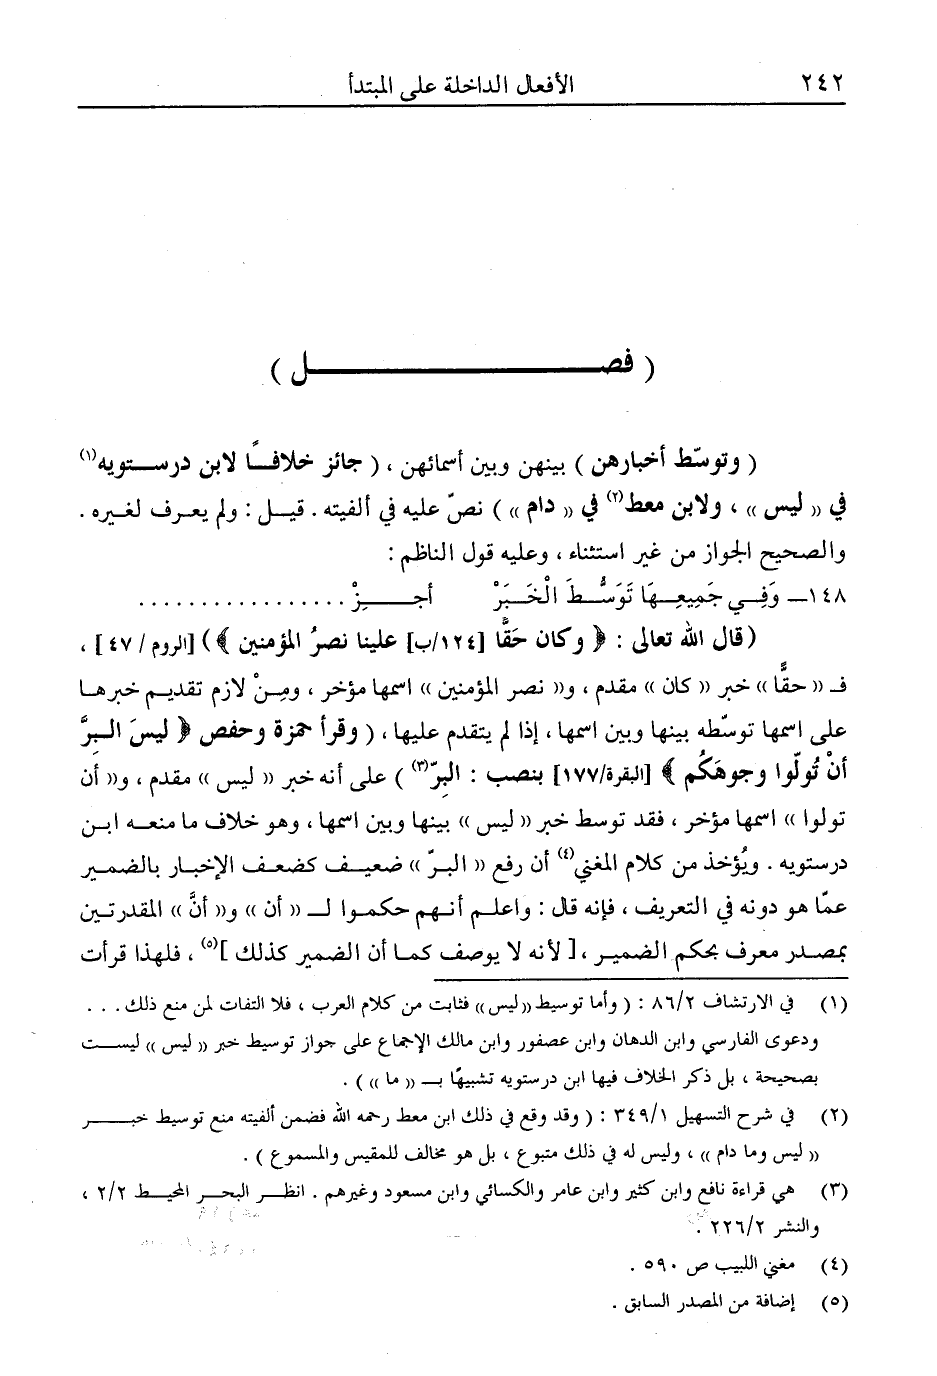 ٢٤٢ الأفعال الداخلة على المبتدأ
( فصــــــــل )
( وتوسّط أخبارهن ) بينهن وبين أسمائهن ، ( جائز خلافاً لابن درستويه(١)
في « ليس » ، ولابن معط(٢) في « دام » ) نصّ عليه في ألفيته . قيل : ولم يعرف لغيره .
والصحيح الجواز من غير استثناء ، وعليه قول الناظم :
١٤٨ـ وَفِي جَمِيعِهَا تَوَسُّطَ الْخَبَرْ أجِزْ .................
(قال الله تعالى : ﴿ وكان حقًّا [١٢٤/ب] علينا نصرُ المؤمنين ﴾) [الروم / ٤٧] ،
فـ « حقًّا » خبر « كان » مقدم ، و« نصر المؤمنين » اسمها مؤخر ، ومِنْ لازم تقديم خبرها
على اسمها توسّطه بينها وبين اسمها ، إذا لم يتقدم عليها ، ( وقرأ حمزة وحفص ﴿ ليسَ البِرَّ
أنْ تُولّوا وجوهَكُم ﴾ [البقرة/١٧٧] بنصب : البِرّ(٣) ) على أنه خبر « ليس » مقدم ، و« أن
تولوا » اسمها مؤخر ، فقد توسط خبر « ليس » بينها وبين اسمها ، وهو خلاف ما منعه ابن
درستويه . ويُؤخذ من كلام المغني(٤) أن رفع « البرّ » ضعيف كضعف الإخبار بالضمير
عمّا هو دونه في التعريف ، فإنه قال : واعلم أنهم حكموا لـ « أن » و« أنَّ » المقدرتين
بمصدر معرف بحكم الضمير ، [ لأنه لا يوصف كما أن الضمير كذلك ](٥) ، فلهذا قرأت
(١) في الارتشاف ٨٦/٢ : ( وأما توسيط « ليس » فثابت من كلام العرب ، فلا التفات لمن منع ذلك . . .
ودعوى الفارسي وابن الدهان وابن عصفور وابن مالك الإجماع على جواز توسيط خبر « ليس » ليست
بصحيحة ، بل ذكر الخلاف فيها ابن درستويه تشبيهًا بـ « ما » ) .
(٢) في شرح التسهيل ٣٤٩/١ : ( وقد وقع في ذلك ابن معط رحمه الله فضمن ألفيته منع توسيط خبر
« ليس وما دام » ، وليس له في ذلك متبوع ، بل هو مخالف للمقيس والمسموع ) .
(٣) هي قراءة نافع وابن كثير وابن عامر والكسائي وابن مسعود وغيرهم . انظر البحر المحيط ٢/٢ ،
والنشر ٢٢٦/٢ .
(٤) مغني اللبيب ص ٥٩٠ .
(٥) إضافة من المصدر السابق .